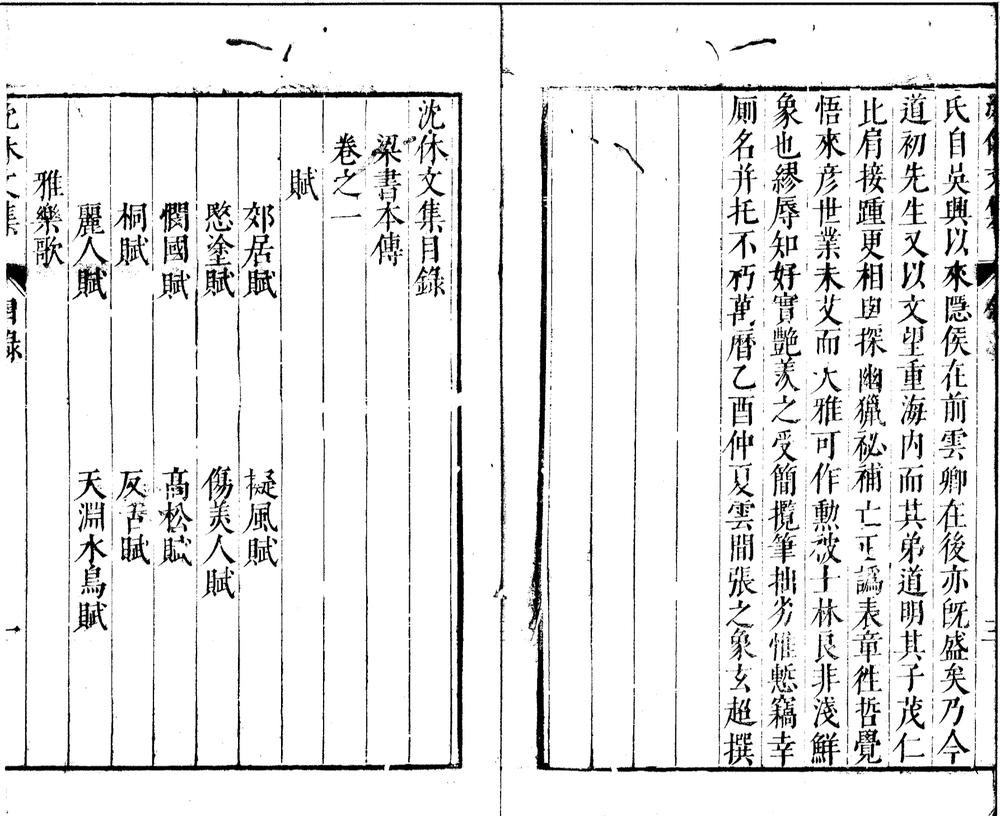 氏自吳興以來隱侯在前雲卿在後亦旣盛矣乃今
道初先生又以文望重海内而其弟道明其子茂仁
比肩接踵更相與探幽獵祕補亡正譌表章徃哲覺
悟來彦世業未艾而大雅可作勲被士林良非淺鮮
象也繆辱知好實艷羨之受簡攬筆拙劣惟慙竊幸
厠名并托不朽萬曆乙酉仲夏雲間張之象玄超撰
沈休文集目錄
梁書本傳
卷之一
賦
郊居賦 擬風賦
愍塗賦 傷美人賦
憫國賦 高松賦
桐賦 反舌賦
麗人賦 天淵水鳥賦
雅樂歌
沈休文集 目錄 一